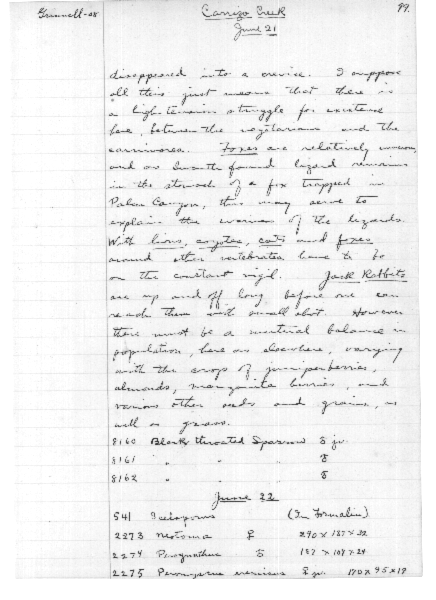 Grinnell-08
Carrizo Creek
99.
June 21
disappeared into a crevice. I suppose
all this just means that there is
a high-tension struggle for existence
here, between the vegetarians and the
carnivora. Foxes are relatively numerous,
and as Swarth found lizard remains
in the stomach of a fox trapped in
Palm Canyon, this may serve to
explain the wariness of the lizards.
With lions, coyotes, cats and foxes
around other vertebrates have to be
on the constant vigil. Jack Rabbits
are up and off long before one can
reach them with small shot. However
there must be a mutual balance in
population, here as elsewhere, varying
with the crops of juniper berries,
almonds, manzanita berries, and
various other seeds and grains, as
well as grass.
8160 Black throated Sparrow ♂ jv.
8161 " " ♂
8162 " " ♂
June 22
541 Sceloporus (In Formalin)
2273 Neotoma ♀ 290 x 137 x 32
2274 Perognathus ♂ 187 x 107 x 24
2275 Peromyscus eremicus ♀ jv. 170 x 95 x 19